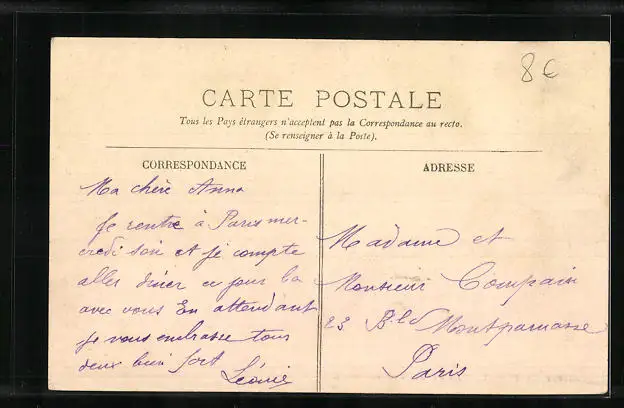 8€
CARTE POSTALE
Tous les Pays étrangers n'acceptent pas la Correspondance au recto.
(Se renseigner à la Poste).
CORRESPONDANCE
Ma chère Anna
Je rentre à Paris mer-
credi soir et je compte
aller dîner ce jour là
avec vous En attendant
je vous embrasse tous
deux bien fort
Léonie
ADRESSE
Madame et
Monsieur Compain
23 Bld Montparnasse
Paris